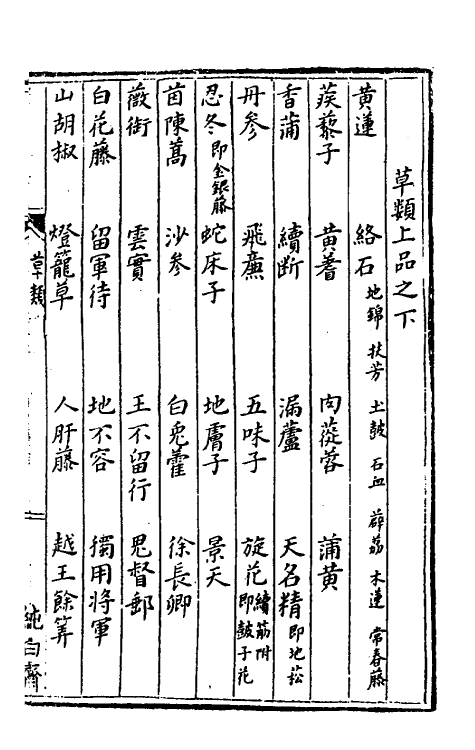 草類上品之下
黃蓮 絡石 地錦 扶芳 土鼓 石血 薜荔 木蓮 常春藤
蒺藜子 黃蓍 肉蓯蓉 蒲黃
香蒲 續斷 漏蘆 天名精 即地菘
丹參 飛廉 五味子 旋花 續筋附 即鼓子花
忍冬 即金銀藤 蛇床子 地膚子 景天
茵陳蒿 沙參 白兔藿 徐長卿
薇銜 雲實 王不留行 鬼督郵
白花藤 留軍待 地不容 獨用將軍
山胡椒 燈籠草 人肝藤 越王餘筭
草類
純白齋